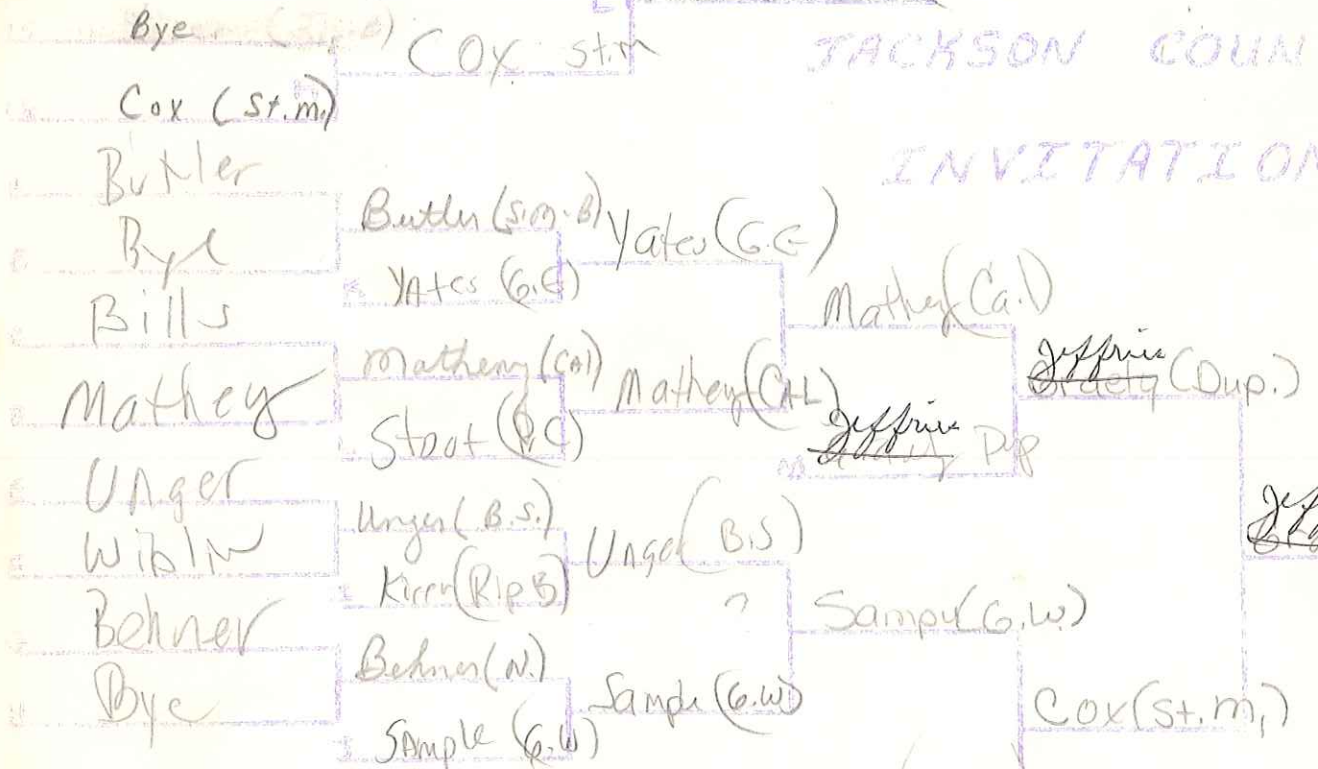 Bye
Cox (St.m.)
COX St.m
JACKSON COUN
INVITATION
Butler
Bye
Bills
Mathey
Unger
Wibln
Behner
Bye
Butler (S.M.-B)
YAtes (G.E)
Matheny (CAl)
Stoot
Unger (B.S.)
Kirrn (Rip B)
Behner (N.)
SAmple (G.W)
Yates (G.E)
Mathey (CAL)
Unger (B.S)
?
Sample (G.W)
Mathey (Ca.l)
Jeffries
Dup
Sample (G.W)
Jeffries
(Dup.)
Cox (St.m.)
Jeff